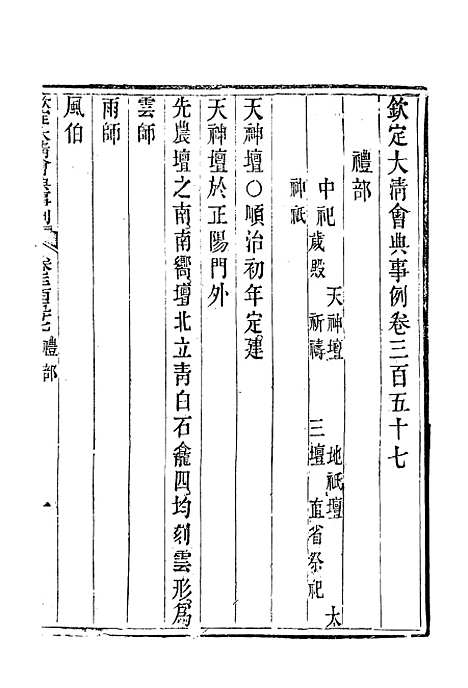 欽定大清會典事例卷三百五十七
禮部
中祀 天神壇 地祇壇 太
歲殿 祈禱 三壇 直省祭祀
神祇
天神壇○順治初年定建
天神壇於正陽門外
先農壇之南南嚮壇北立青白石龕四均刻雲形為
雲師
雨師
風伯
欽定大清會典事例 卷三百五十七 禮部 一